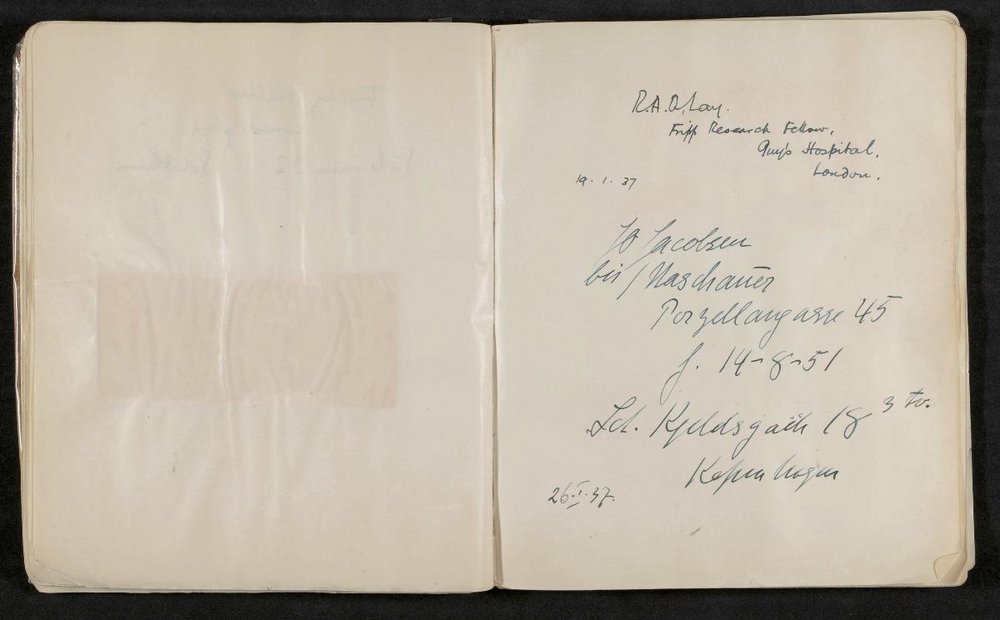 R.A.Q. Lay.
Fripp Research Fellow,
Guy's Hospital,
London.
19.1.37
Jo Jacobsen
bei Maschauer
Porzellangasse 45
f. 14-8-51
Sct. Kjeldsgade 18 3
Kopenhagen
26.I.37.